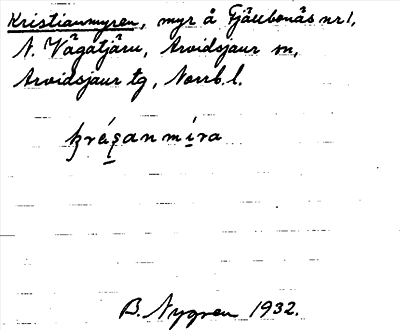 Kristianmyren, myr å Fjällbonäs nr 1,
N. Vägatjäru, Arvidsjaur sn,
Arvidsjaur tg, Norrb. l.
kréşanmi̱ra
B. Nygren 1932.